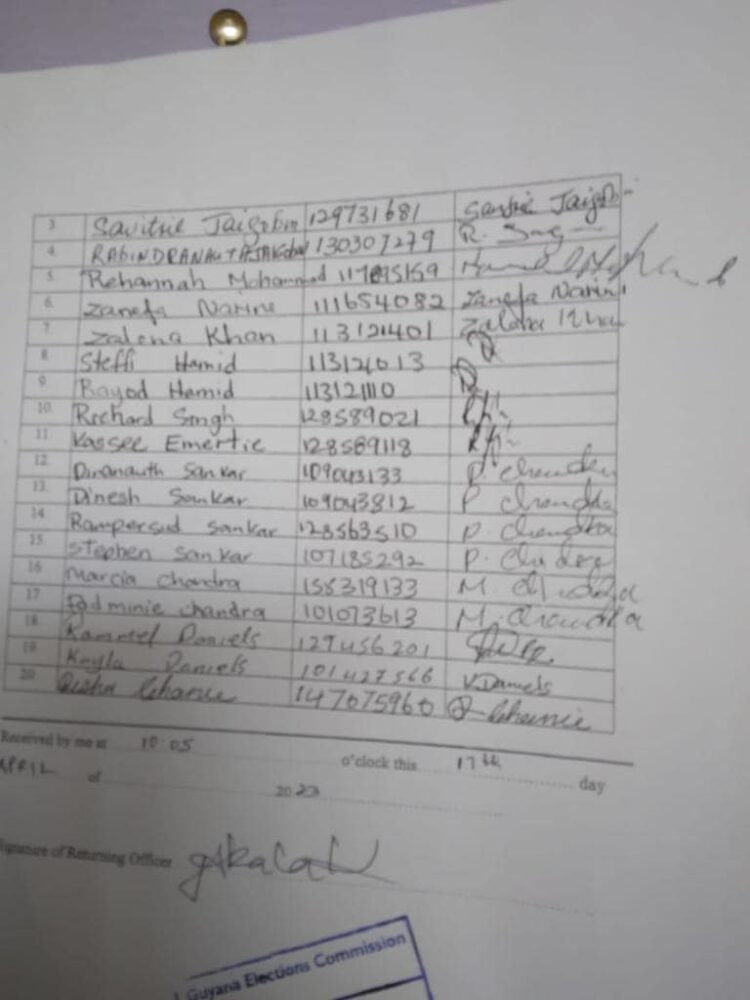 3 Savitrie Jaigobin 129731681 Savitrie Jaigobin
4 130307279 R.
5 Rehannah Mohammed
6. Zanefa Narine 111654082 Zanefa Narine
7 Zalena Khan 113121401 Zalena Khan
8 Steffi Hamid 113121013
9. Rayod Hamid 113121110
10. Richard Singh 128589021
11. Vassee Emertie 128589118
12 Dinanauth Sankar 109043133 P. Chandra
13. Dinesh Sankar 109043812 P Chandra
14 Rampersud Sankar 128563510 P. Chandra
15 Stephen Sankar 107185292 P.
16 Marcia Chandra 158319133 M. Chandra
17 Padminie Chandra 101073613 M. Chandra
18 Daniels 127456201
19 Kayla Daniels 101427566 V. Daniels
20 147075960
Received by me at 10:05 o'clock this 17th day
APRIL of 2023
Signature of Returning Officer
Guyana Elections Commission